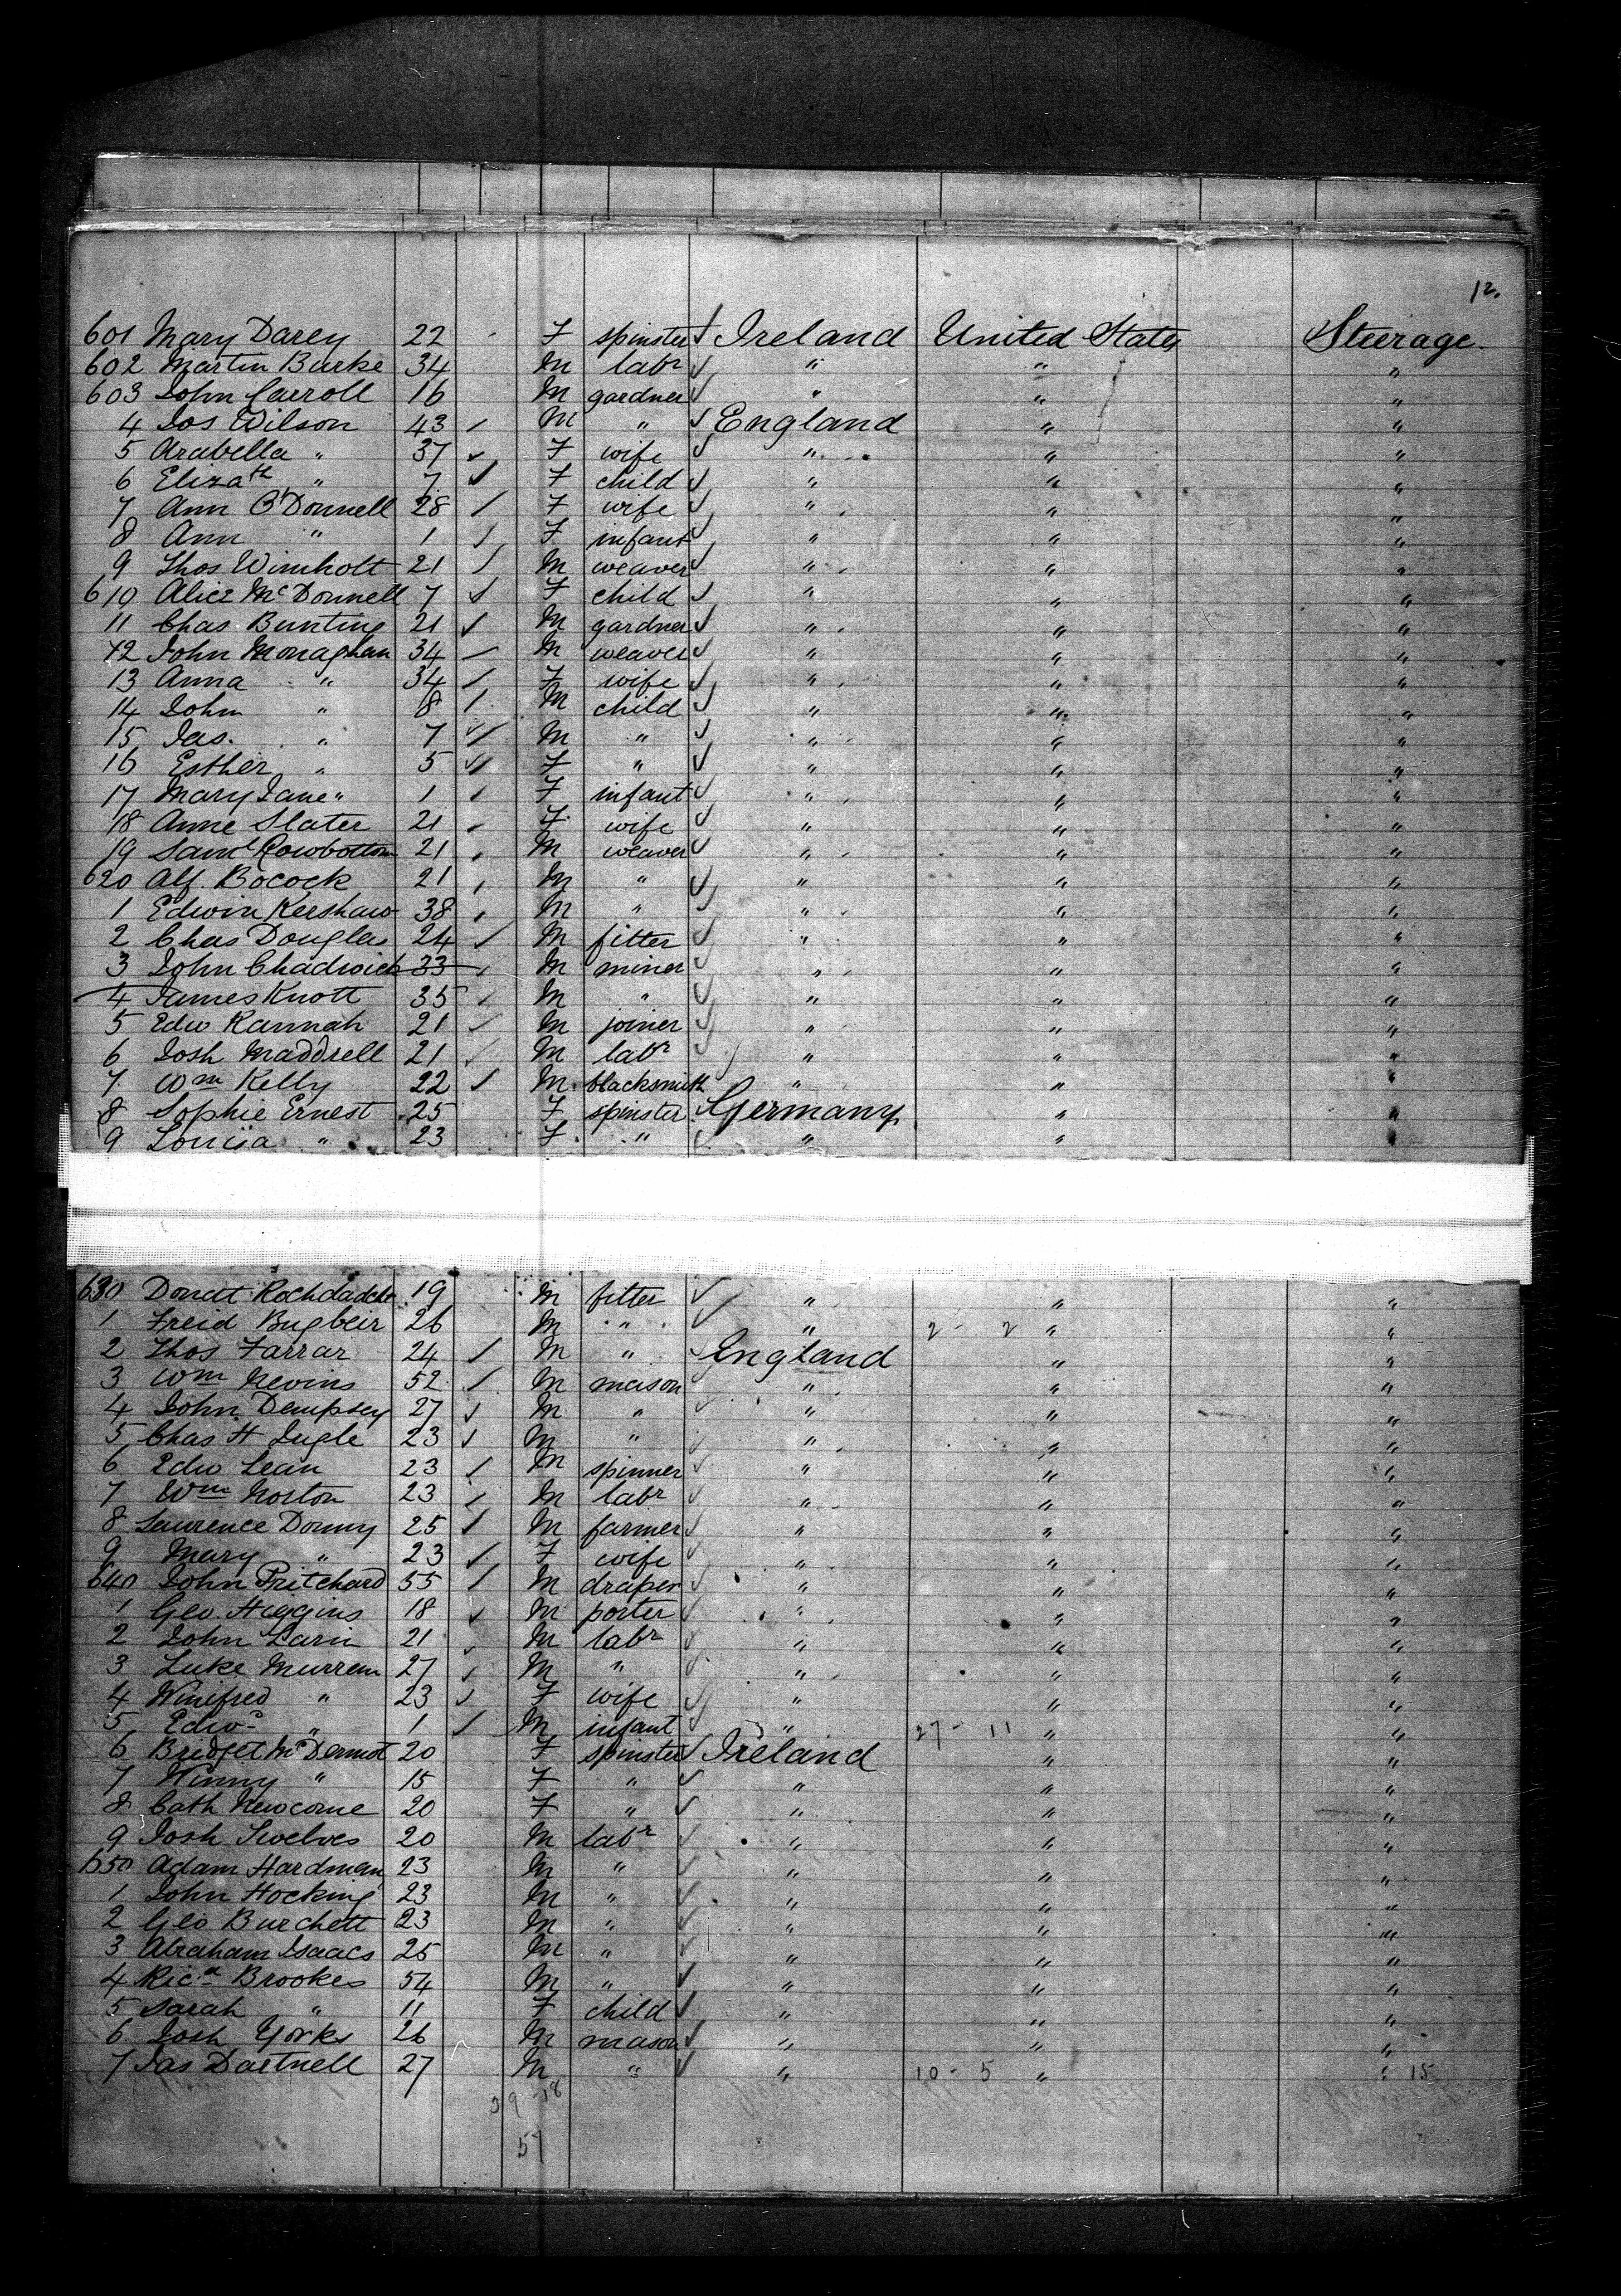 12.
601 Mary Darcy 22 F spinster Ireland United States Steerage
602 Martin Burke 34 M labr " " "
603 John Carroll 16 M gardner " " "
4 Jos Wilson 43 M " England " "
5 Arabella " 37 F wife " " "
6 Elizath " 7 F child " " "
7 Ann O'Donnell 28 F wife " " "
8 Ann " 1 F infant " " "
9 Thos Wimhott 21 M weaver " " "
610 Alice McDonnell 7 F child " " "
11 Chas Bunting 21 M gardner " " "
12 John Monaghan 34 M weaver " " "
13 Anna " 34 F wife " " "
14 John " 8 M child " " "
15 Jas. " 7 M " " " "
16 Esther " 5 F " " " "
17 Mary Jane " 1 F infant " " "
18 Anne Slater 21 F wife " " "
19 Saml Rowbottom 21 M weaver " " "
620 Alf. Bocock 21 M " " " "
1 Edwin Kershaw 38 M " " " "
2 Chas Douglas 24 M fitter " " "
3 John Chadwick 33 M miner " " "
4 James Knott 35 M " " " "
5 Edw Rannah 21 M joiner " " "
6 Josh Maddrell 21 M labr " " "
7 Wm Kelly 22 M blacksmith " " "
8 Sophie Ernest 25 F spinster Germany " "
9 Louisa " 23 F " " " "
630 Donat 19 M fitter " " "
1 Freid Bugbeir 26 M " " 2 - 2 " "
2 Thos Farrar 24 M " England " "
3 Wm Nevins 52 M mason " " "
4 John Dempsey 27 M " " " "
5 Chas H Ingle 23 M " " " "
6 Edw Lean 23 M spinner " " "
7 Wm Norton 23 M labr " " "
8 Lawrence Donny 25 M farmer " " "
9 Mary " 23 F wife " " "
640 John Pritchard 55 M draper " " "
1 Geo. Higgins 18 M porter " " "
2 John Larin 21 M labr " " "
3 Luke Murren 27 M " " " "
4 Winifred " 23 F wife " " "
5 Edwd " 1 M infant " 27 - 11 " "
6 Bridget McDermot 20 F spinster Ireland " "
7 Winny " 15 F " " " "
8 Cath Newcome 20 F " " " "
9 Josh Twelves 20 M labr " " "
650 Adam Hardman 23 M " " " "
1 John Hocking 23 M " " " "
2 Geo Burchett 23 M " " " "
3 Abraham Isaacs 25 M " " " "
4 Ricd Brookes 54 M " " " "
5 Sarah " 11 F child " " "
6 Josh Yorks 26 M mason " " "
7 Jas Dartnell 27 M " " 10 - 5 " " 15
39 - 18
57